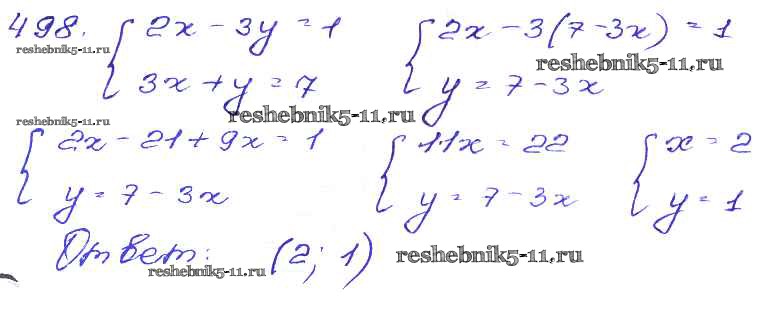 498. { 2x - 3y = 1 { 2x - 3(7 - 3x) = 1
reshebnik5-11.ru
reshebnik5-11.ru
3x + y = 7 y = 7 - 3x
reshebnik5-11.ru
reshebnik5-11.ru
{ 2x - 21 + 9x = 1 { 11x = 22 { x = 2
y = 7 - 3x y = 7 - 3x y = 1
Ответ: (2; 1)
reshebnik5-11.ru
reshebnik5-11.ru